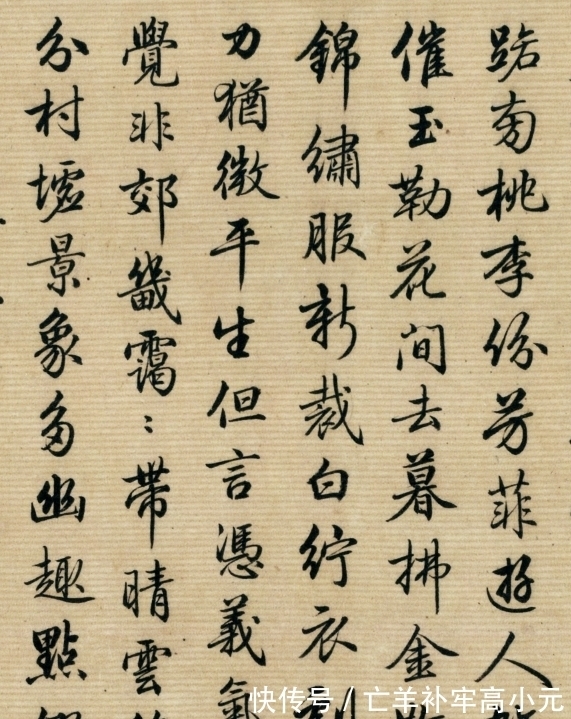 路旁桃李份芳菲遊人
催玉勒花間去暮拂金
錦繡服新裁白紵衣
力猶微平生但言憑義氣
覺非郊畿靄〻帶晴雲
分村墟景象多幽趣點
快传号 / 亡羊补牢高小元